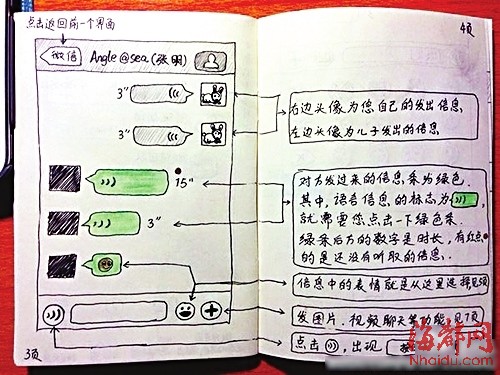 点击返回前一个界面
微信
Angle@sea(张明)
3"
3"
15"
3"
3页
4页
右边头像为您自己的发出信息
左边头像为儿子发出的信息
对方发过来的信息条为绿色.
其中,语音信息的标志为
就需要您点击一下绿色条
绿条后方的数字是时长,有红点
的是还没有听取的信息.
信息中的表情就是从这里选择见页
发图片.视频聊天等功能,见7页
点击 ,出现
海都网
Nhaidu.com